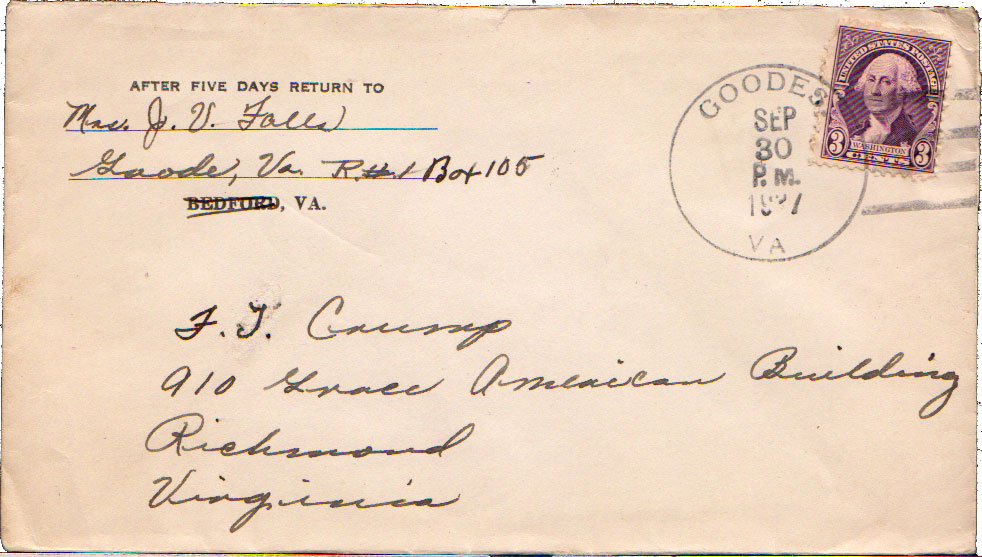 AFTER FIVE DAYS RETURN TO
Mrs. J. V. Falls
Goode, Va. R.#.1 Box 105
BEDFORD, VA.
GOODES
SEP
30
P.M.
VA
UNITED STATES POSTAGE
WASHINGTON
3 CENTS 3
F. T. Crump
910 Grace American Building
Richmond
Virginia